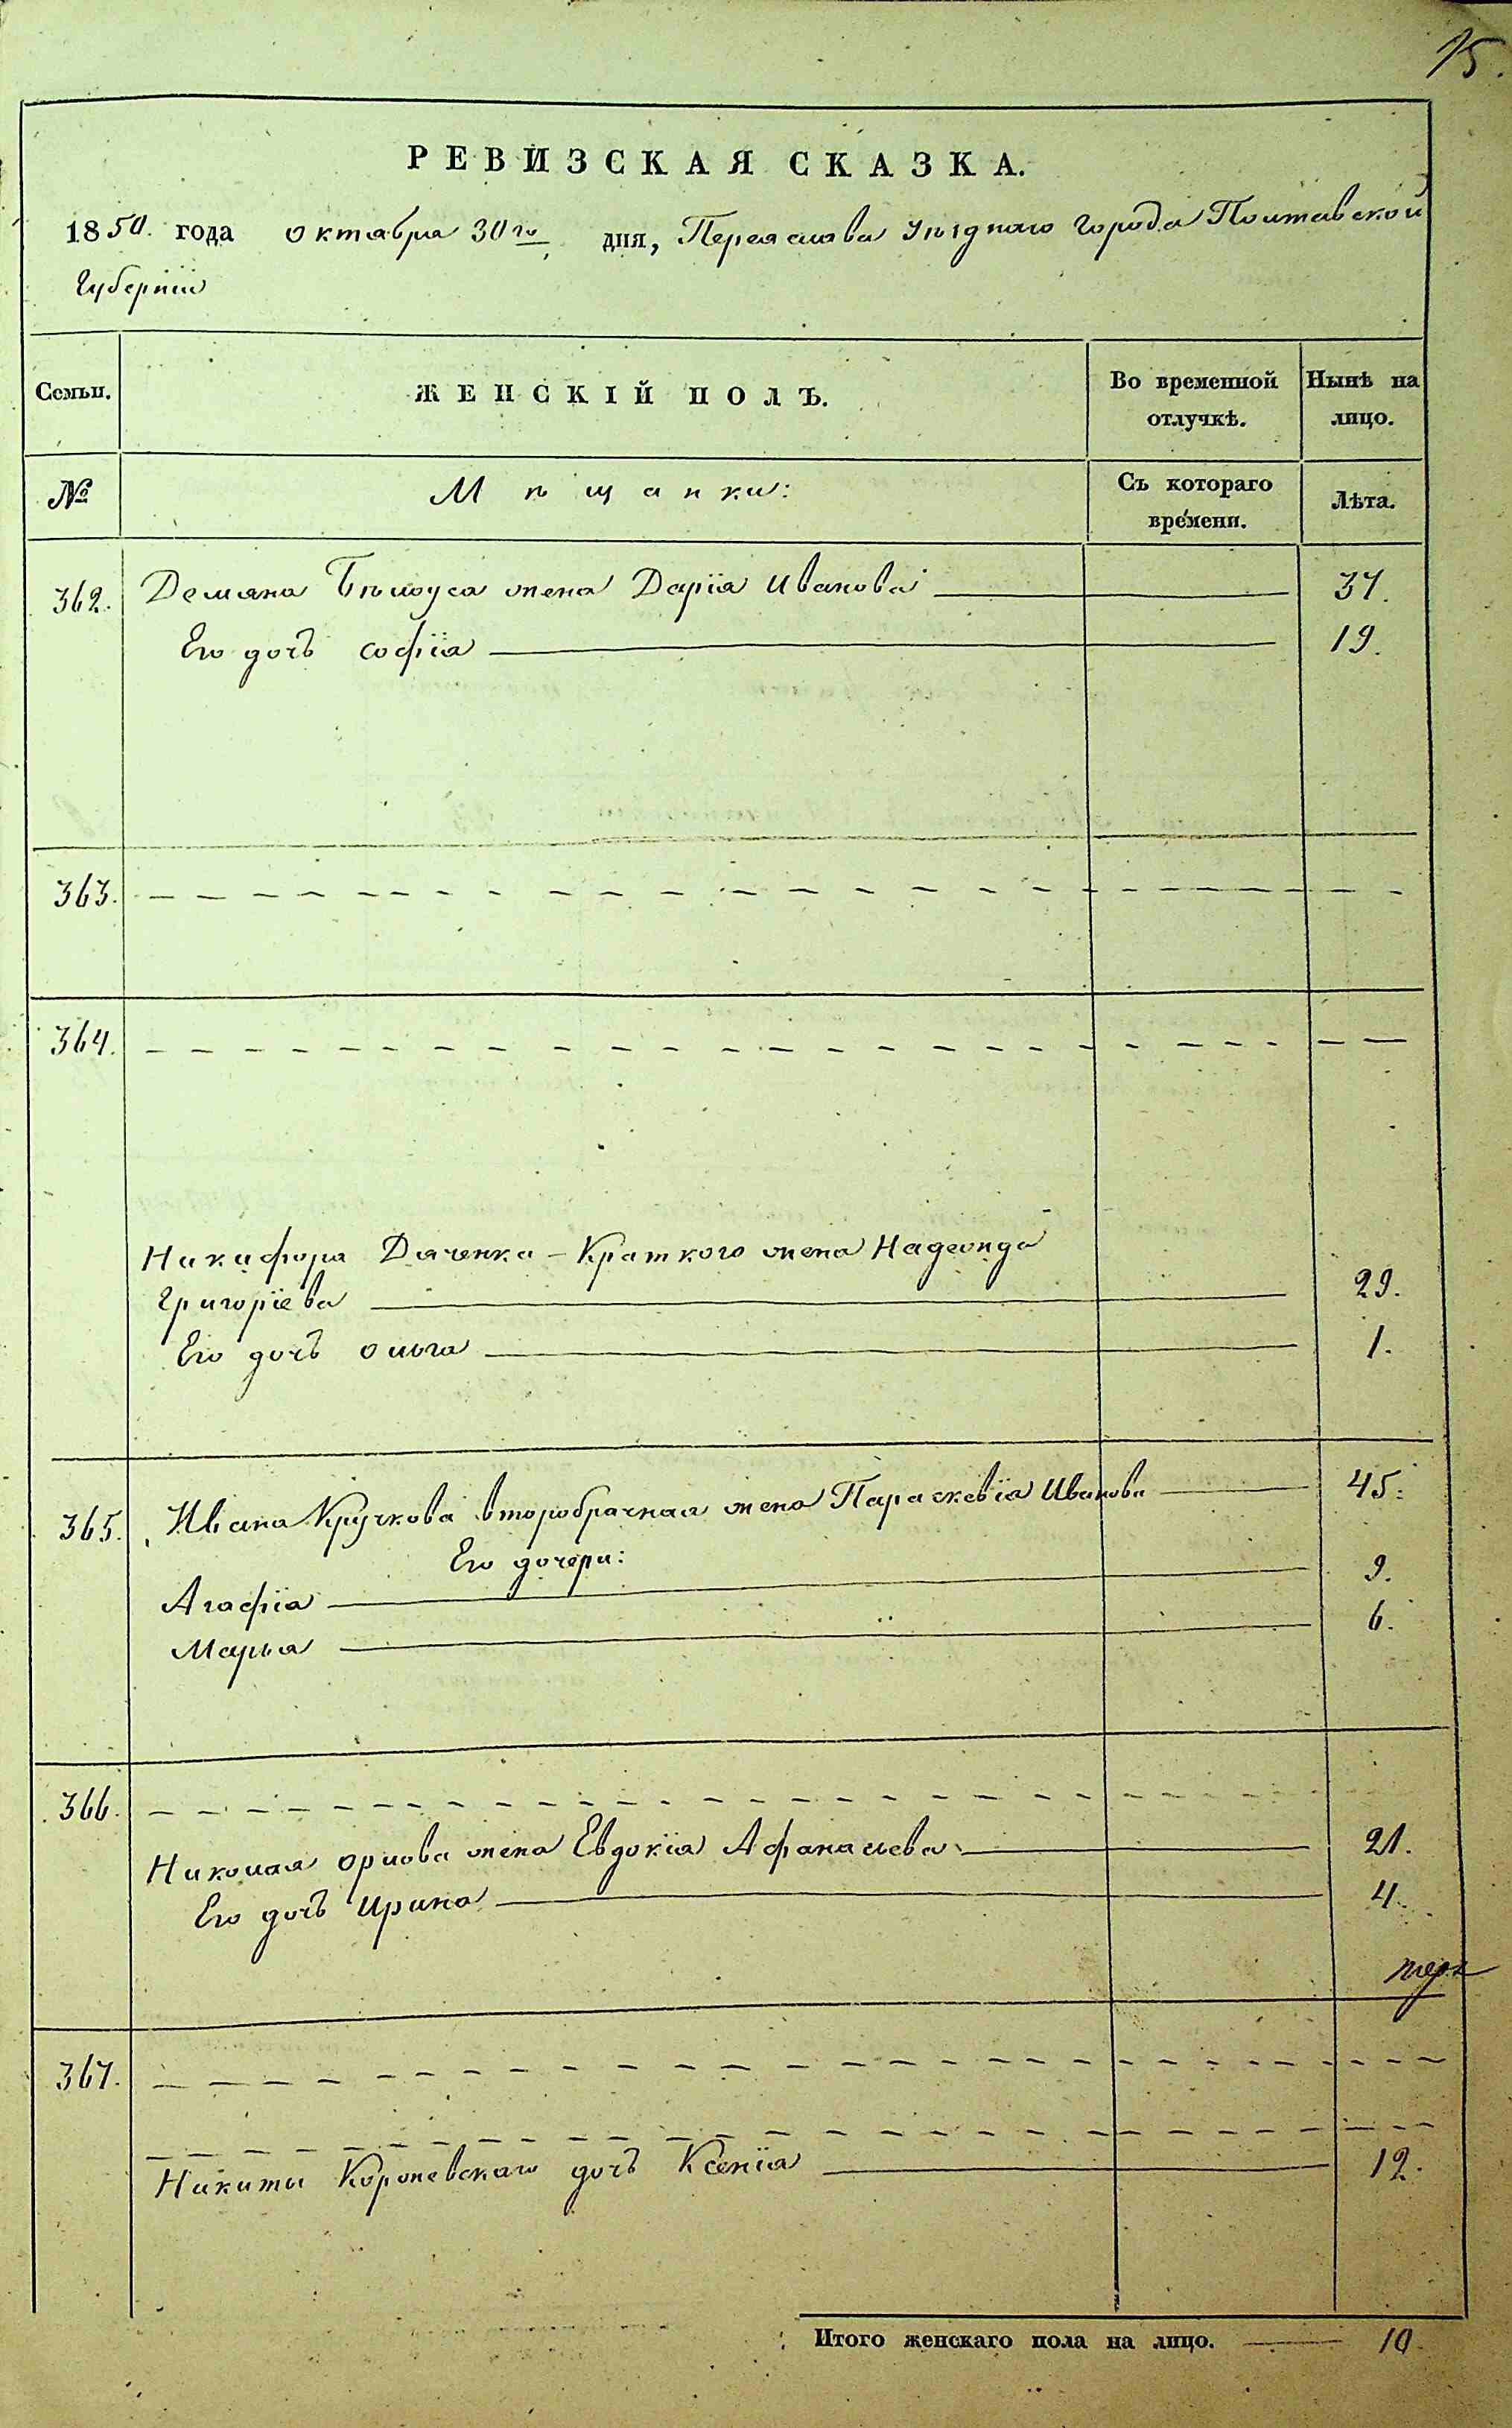 15.
РЕВИЗСКАЯ СКАЗКА.
1850. года октября 30го дня, Переяслава Уѣзднаго города Полтавской
Губернїи
Семьи. ЖЕНСКІЙ ПОЛЪ. Во временной отлучкѣ. Нынѣ на лицо.
№ Мѣщанки: Съ котораго времени. Лѣта.
362. Демяна Бѣлоуса жена Дарїя Иванова 37.
Его дочь софїя 19.
363.
364.
Никифора Дяченка-Краткого жена Надежда
Григорїева 29.
Его дочь ольга 1.
365. Ивана Кручкова второбрачная жена Параскевїя Иванова 45.
Его дочери:
Агафїя 9.
Марья 6.
366.
Николая орлова жена Евдокїя Афанасьева 21.
Его дочь Ирина 4.
367.
Никиты Короневскаго дочь Ксенїя 12.
Итого женскаго пола на лицо. 10.